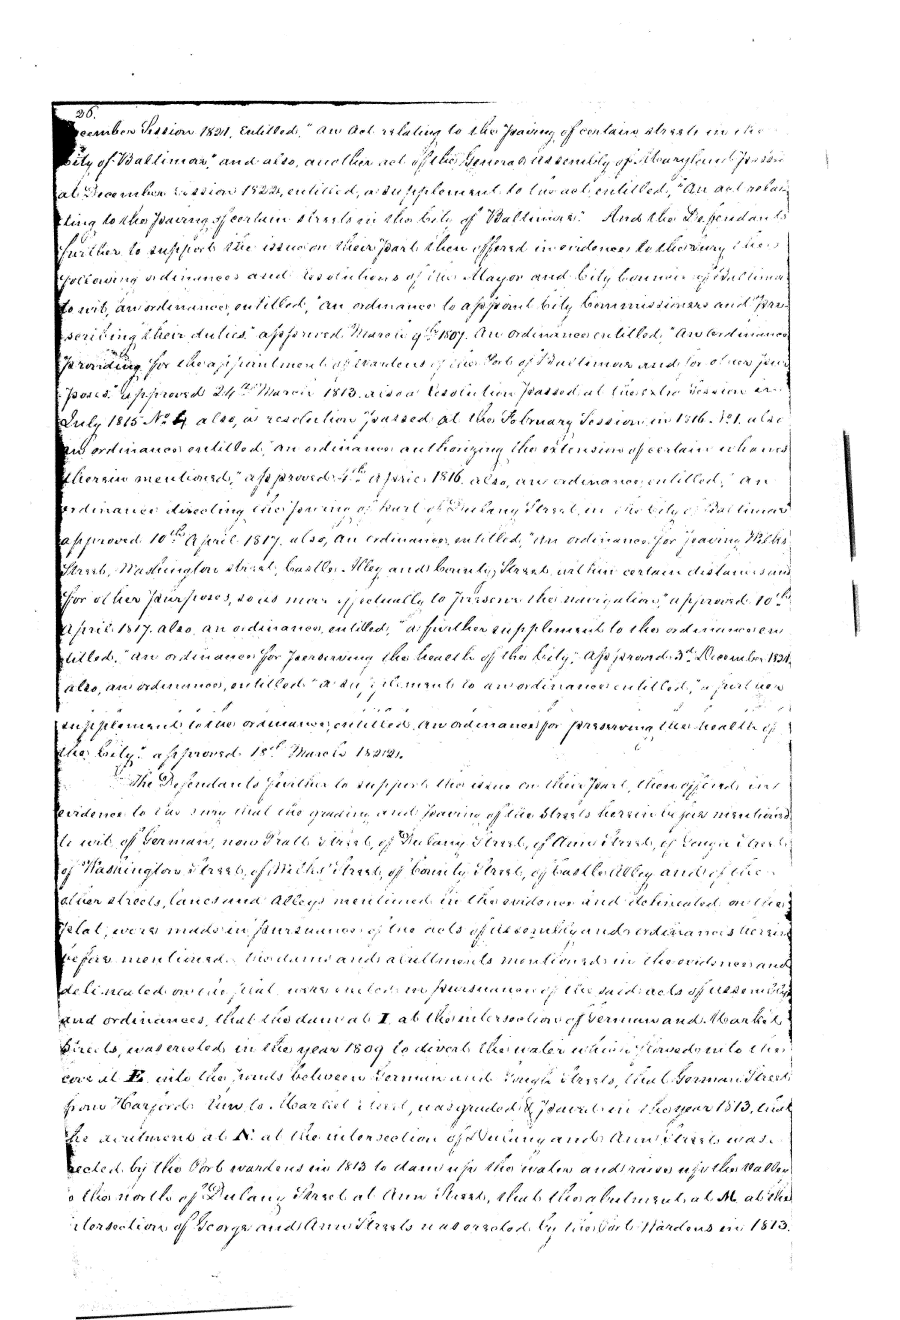 26.
December Session 1821. Entitled, "An Act relating to the Paving of certain streets in the
City of Baltimore," and also, another act of the General Assembly of Maryland Passed
at December Session 1822, entitled, a supplement to the act, entitled, "An act rela-
ting to the Paving of certain streets in the City of Baltimore." And the Defendants
further to support the issue on their part then offered in evidence to the Jury the
following ordinances and resolutions of the Mayor and City Council of Baltimore
to wit, an ordinance, entitled, "An ordinance to appoint City Commissioners and Pre-
scribing their duties." approved March 9th 1807. An ordinance, entitled, "An Ordinance
Providing for the appointment of Wardens of the Port of Baltimore and for other Pur
poses." approved 24th March 1813. also a Resolution Passed at the extra Session in
July 1815 No. 4 also, a resolution Passed at the February Session in 1816. No. 1. also
an ordinance entitled, "an ordinance authorizing the extension of certain wharves
therein mentioned," approved 4th April 1816. also, an ordinance, entitled, "an
ordinance directing the Paving of Part of Dulany Street, in the City of Baltimore
approved 10th April 1817. also, an ordinance, entitled, "An ordinance for Paving Wilks
Street, Washington street, Castle Alley and County Street, within certain distances and
for other Purposes, so as more effectually to preserve the navigation," approved 10th
April 1817. also, an ordinance, entitled, "a further supplement to the ordinance en
titled, "An ordinance for Preserving the health of the City," approved 3d. December 1821.
also, an ordinance, entitled "a supplement to an ordinance entitled, "a further
supplement to the ordinance, entitled, An ordinance for preserving the health of
the City." approved 18th March 1822.
The Defendants further to support the issue on their Part, then offered in
evidence to the Jury that the grading and Paving of the Streets herein before mentioned
to wit, of German, now Pratt Street, of Dulany Street, of Ann Street, of Gough Street
of Washington Street, of Wilks Street, of County Street, of Castle Alley and of the
other streets, lanes and Alleys mentioned in the evidence and delineated on the
Plat, were made in Pursuance of the acts of assembly and ordinances herein
before mentioned. the dams and abutments mentioned in the evidence and
delineated on the plat, were erected in pursuance of the said acts of assembly
and ordinances, that the dam at I, at the intersection of German and Market
Streets, was erected in the year 1809 to divert the water which flowed into the
cove at E. into the ponds between German and Gough Streets, that German Street
from Harford Run to Market Street, was graded & paved in the year 1813, that
the abutment at N. at the intersection of Dulany and Ann Streets was
erected by the Port wardens in 1813 to dam up the water and raise up the Valley
to the north of Dulany Street at Ann Street, that the abutment at M. at the
intersection of George and Ann Streets was erected by the Port Wardens in 1813.